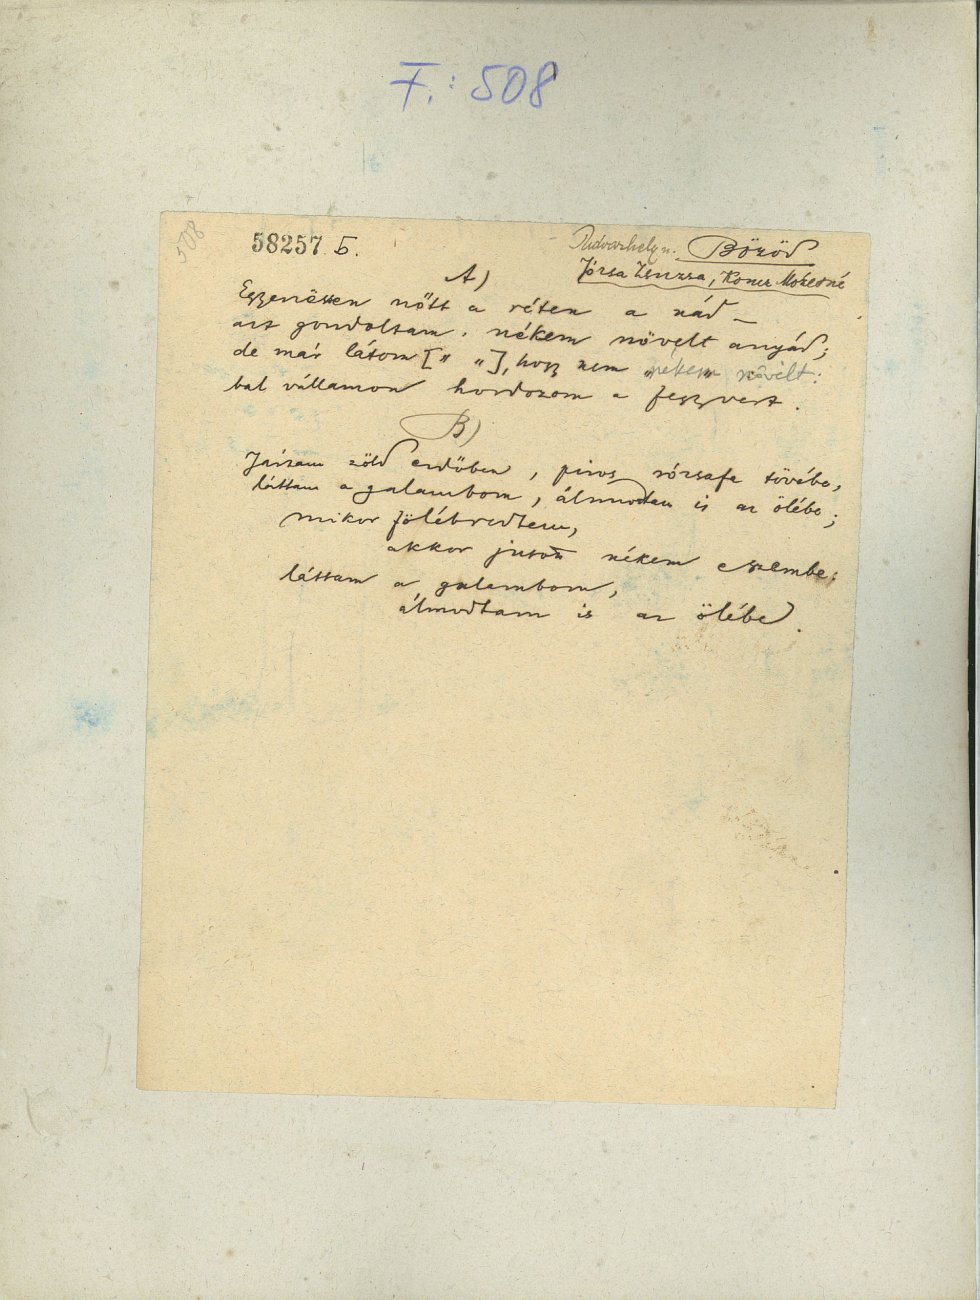 F.: 508
508
58257 b.
Pudvarhely m. Bözöd
Józsa Zsuzsa, Koncz Mózesné
A)
Egyenössen nőtt a réten a nád –
azt gondoltam, nékem növelt anyád;
de már látom [" "], hogy nem „nekem" növelt:
bal vállamon hordozom a fegyvert.
B)
Jártam zöld erdőben, piros rózsafa tövébe,
láttam a galambom, álmodtam is az ölébe;
mikor fölébredtem,
akkor jutott nékem eszembe:
láttam a galambom,
álmodtam is az ölébe.